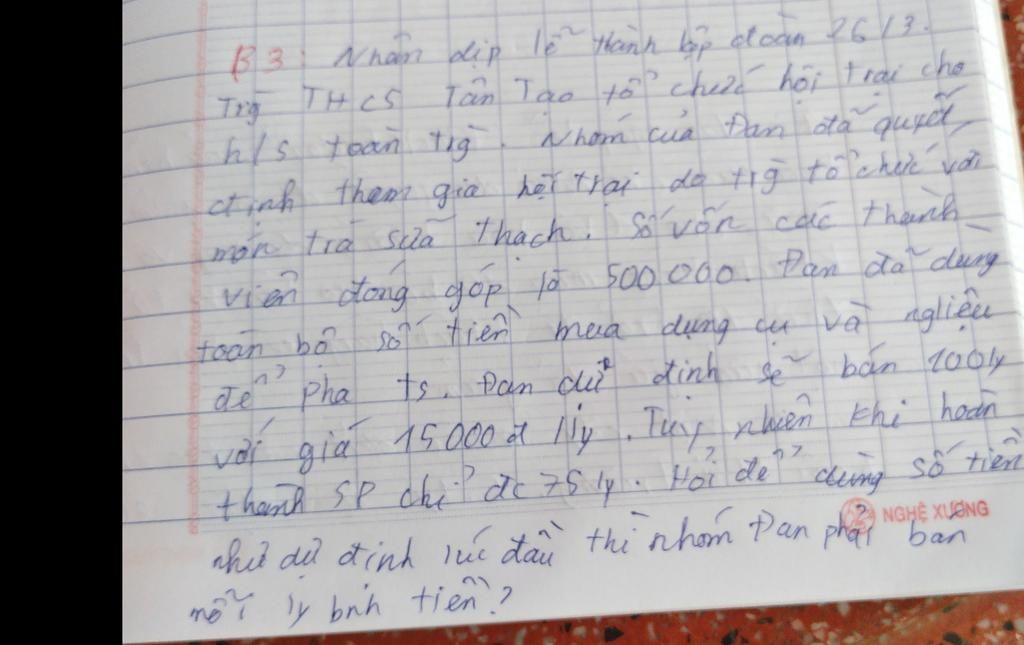 B3: Nhân dịp lễ thành lập đoàn 26/3.
Trg̃ THCS Tân Tạo tổ chức hội trại cho
h/s toàn trg̃. Nhóm của Đan đã quyết
định tham gia hội trại do trg̃ tổ chức với
món trà sữa thạch. Số vốn các thành
viên đóng góp là 500 000. Đan đã dùng
toàn bộ số tiền mua dụng cụ và ngliệu
để pha ts. Đan dự định sẽ bán 100 ly
với giá 15.000đ 1ly. Tuy nhiên khi hoàn
thành SP chỉ đc 75 ly. Hỏi để dùng số tiền
NGHỆ XƯƠNG
như dự định lúc đầu thì nhóm Đan phải bán
mỗi ly bnh tiền?